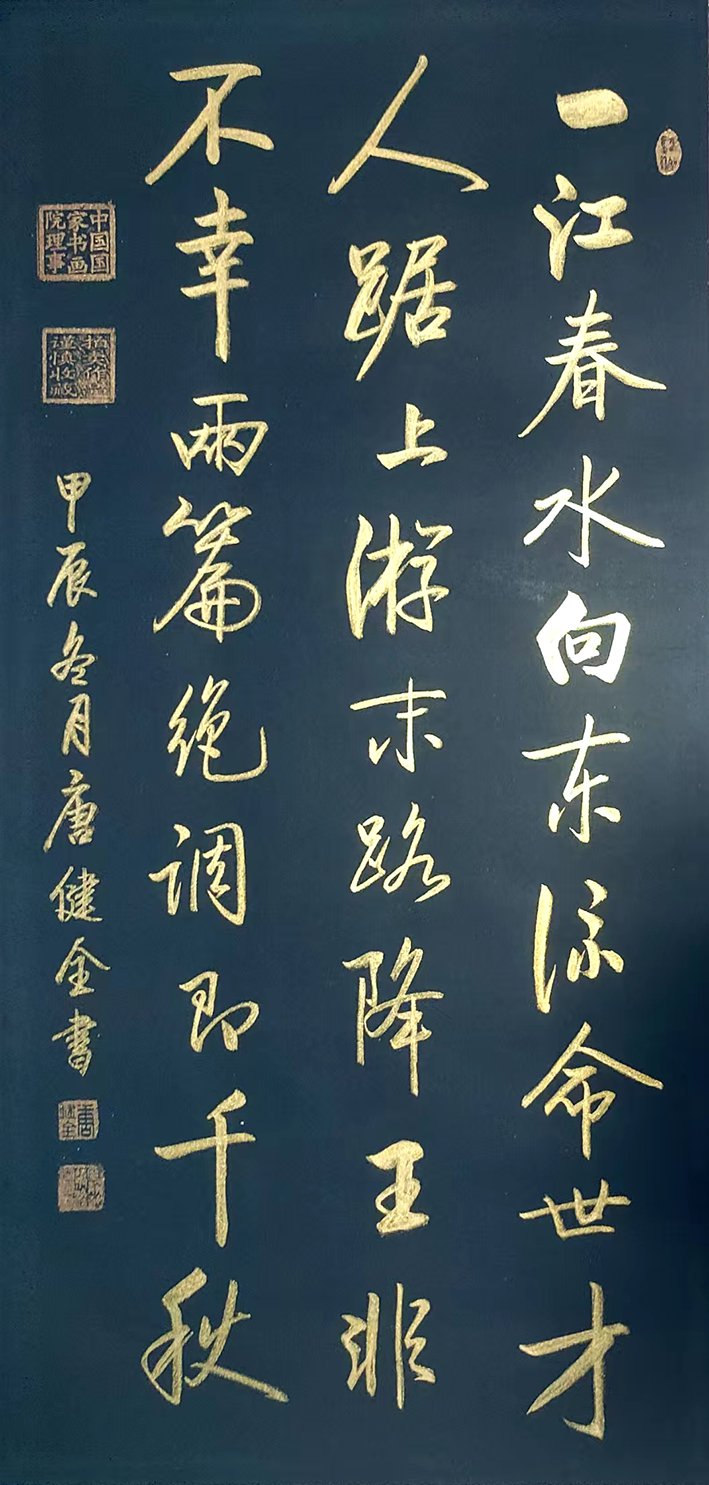 一江春水向东流命世才
人踞上游末路降王非
不幸两篇绝调即千秋
中国国
家书画
院理事
谨慎收藏
甲辰冬月唐健全书
唐健全